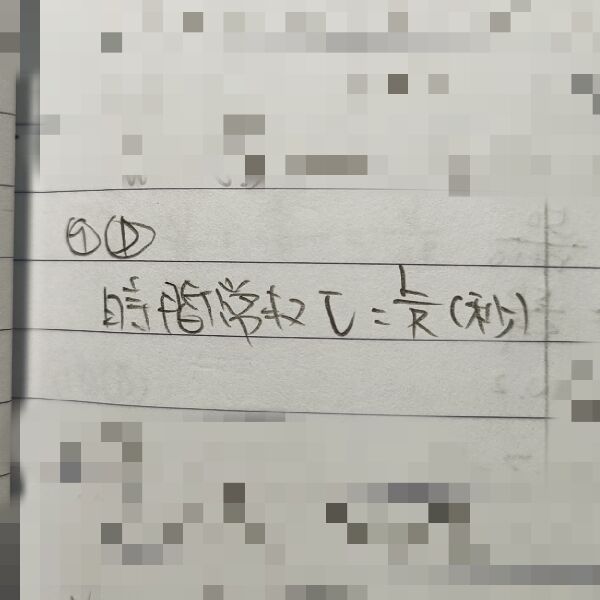 ①①
時間常数 τ = L/R (秒)